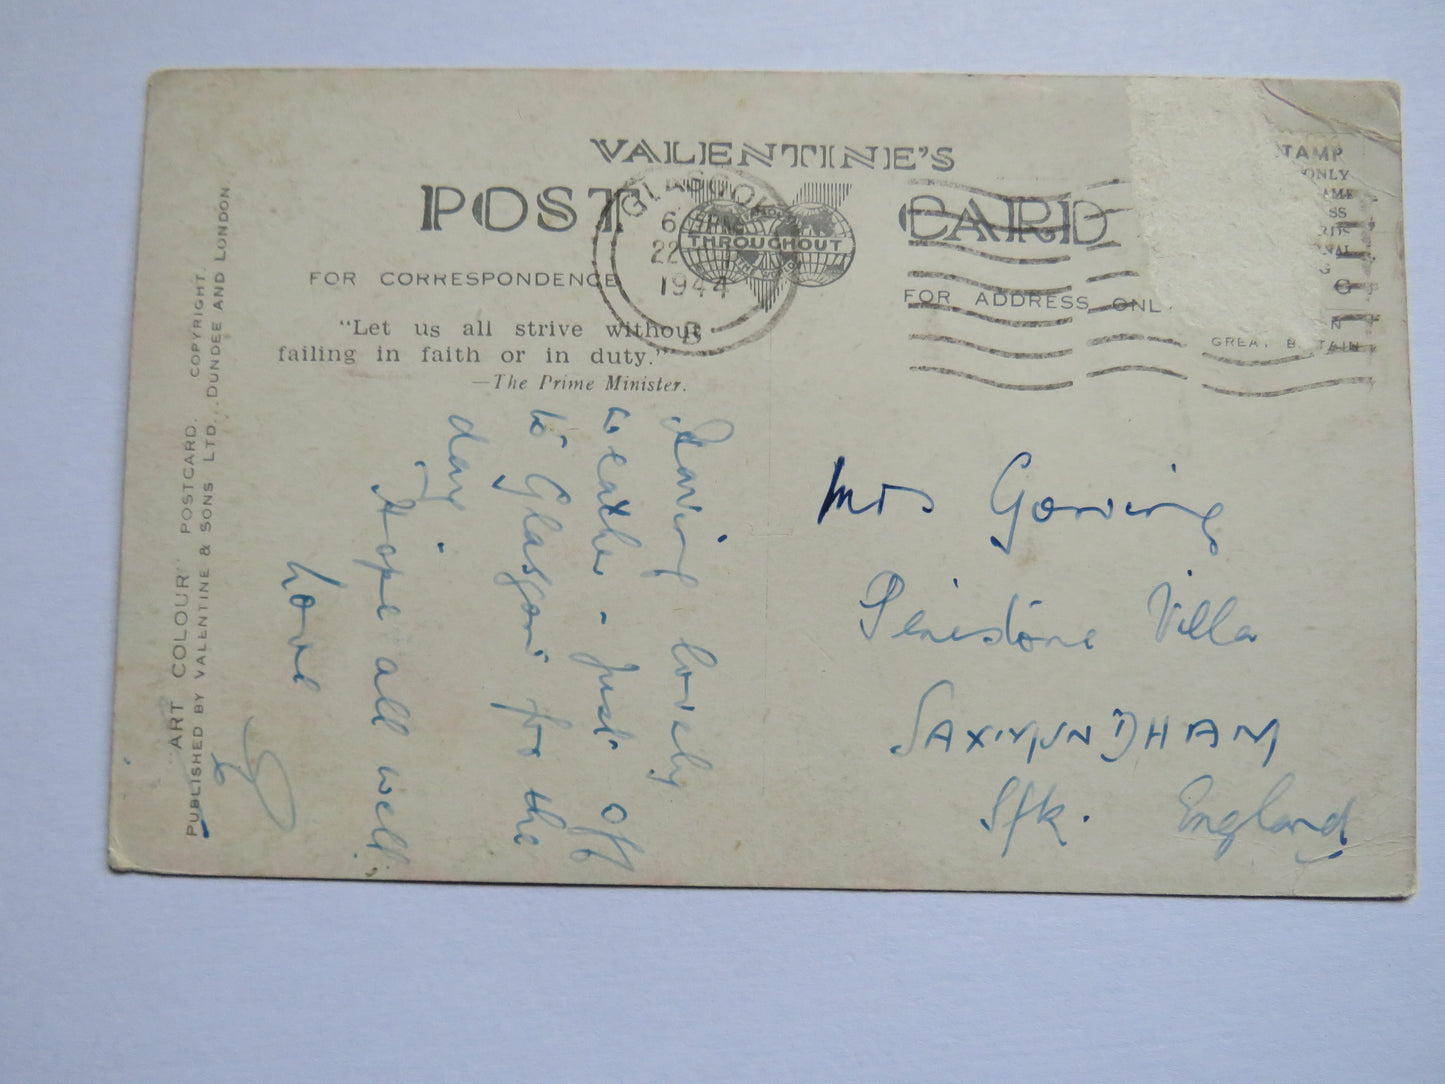 VALENTINE'S
POST CARD
THROUGHOUT
GLASGOW
6
22
1944
B
FOR CORRESPONDENCE
FOR ADDRESS ONLY
STAMP
ONLY
GREAT BRITAIN
"Let us all strive without
failing in faith or in duty."
—The Prime Minister.
Having lovely
weather - just off
to Glasgow for the
day.
Hope all well,
Love
Mrs
Penistone Villa
SAXMUNDHAM
Sfk. England
"ART COLOUR" POSTCARD. COPYRIGHT.
PUBLISHED BY VALENTINE & SONS LTD., DUNDEE AND LONDON.